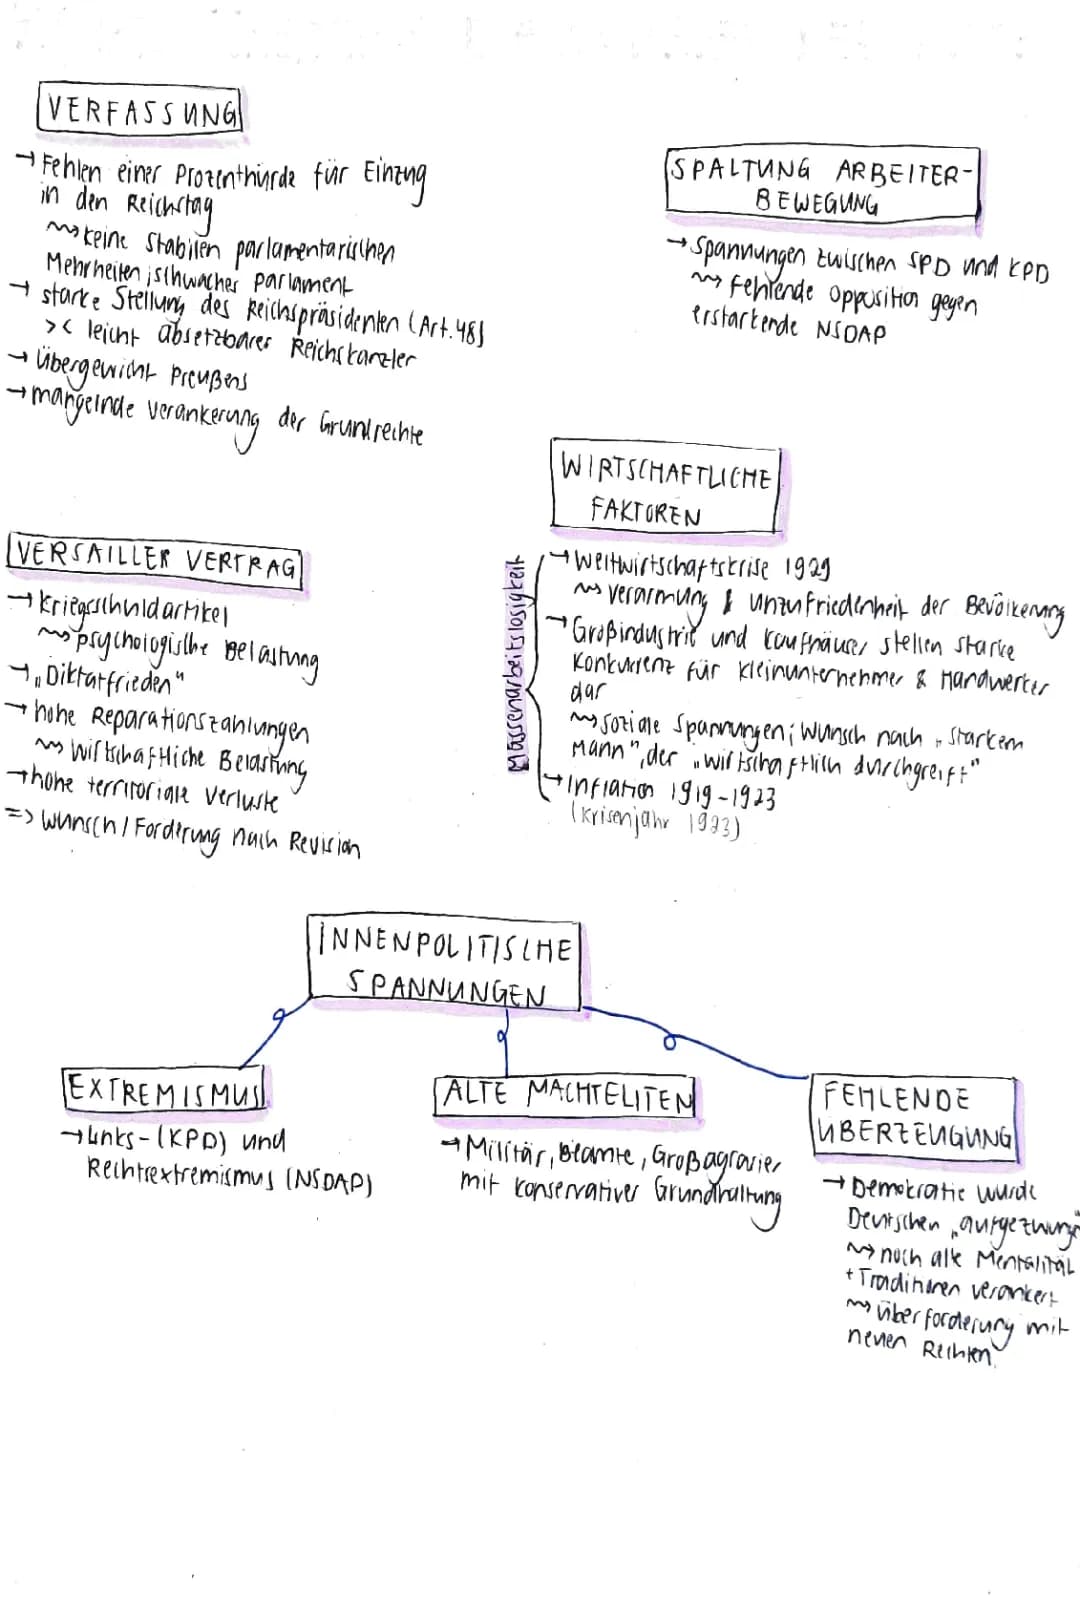 VERFASSUNG
→ Fehlen einer Prozenthürde für Einzug
in den Reichstag
⇝ keine stabilen parlamentarischen
Mehrheiten; schwaches Parlament
→ starke Stellung des Reichspräsidenten (Art. 48)
>< leicht absetzbarer Reichskanzler
→ Übergewicht Preußens
→ mangelnde Verankerung der Grundrechte
SPALTUNG ARBEITER-
BEWEGUNG
→ Spannungen zwischen SPD und KPD
⇝ fehlende Opposition gegen
erstarkende NSDAP
VERSAILLER VERTRAG
→ Kriegsschuldartikel
⇝ psychologische Belastung
→ „Diktatfrieden"
→ hohe Reparationszahlungen
⇝ wirtschaftliche Belastung
→ hohe territoriale Verluste
=> Wunsch / Forderung nach Revision
WIRTSCHAFTLICHE
FAKTOREN
Massenarbeitslosigkeit
→ Weltwirtschaftskrise 1929
⇝ Verarmung & Unzufriedenheit der Bevölkerung
→ Großindustrie und Kaufhäuser stellen starke
Konkurrenz für Kleinunternehmer & Handwerker
dar
⇝ soziale Spannungen; Wunsch nach „starkem
Mann", der „wirtschaftlich durchgreift"
→ Inflation 1919-1923
(Krisenjahr 1923)
INNENPOLITISCHE
SPANNUNGEN
EXTREMISMUS
→ Links- (KPD) und
Rechtsextremismus (NSDAP)
ALTE MACHTELITEN
→ Militär, Beamte, Großagrarier
mit konservativer Grundhaltung
FEHLENDE
ÜBERZEUGUNG
→ Demokratie wurde
Deutschen „aufgezwung"
⇝ noch alte Mentalität
+ Traditionen verankert
⇝ Überforderung mit
neuen Rechten